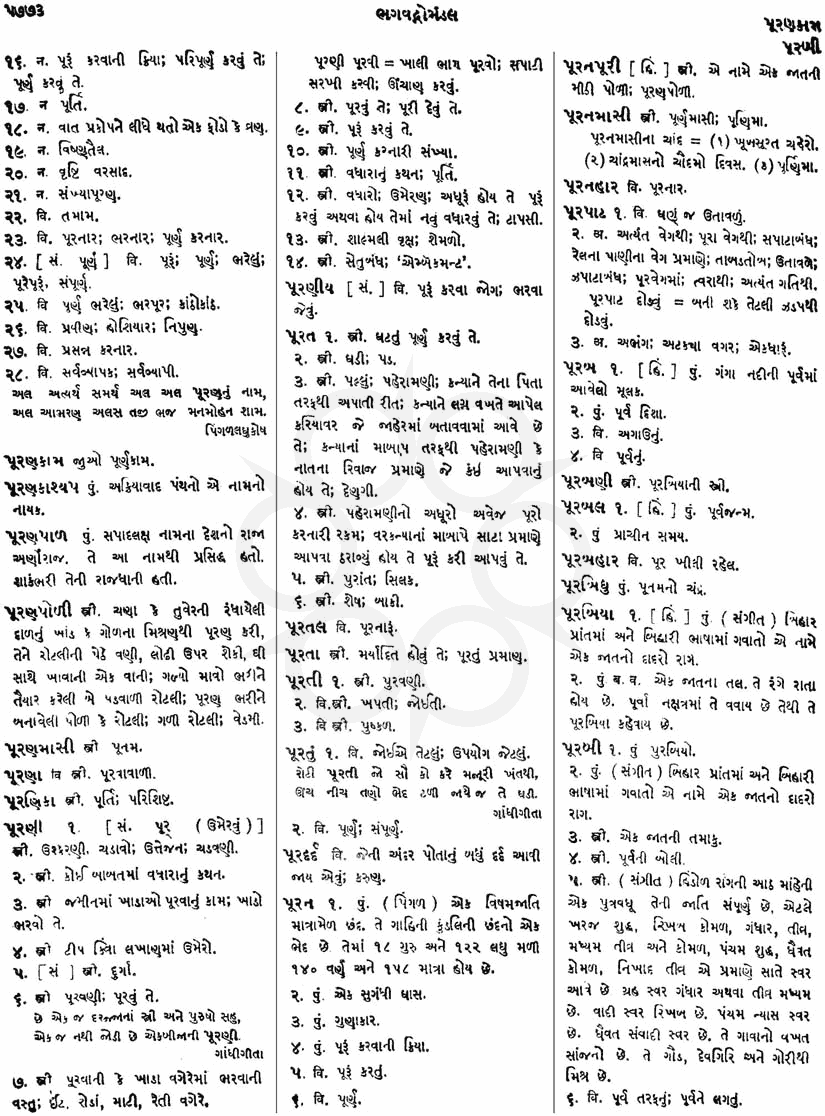 ૫૭૭૩
ભગવદ્ગોમંડલ
પૂરણકામ
પૂરબી
૧૬. ન. પૂરૂં કરવાની ક્રિયા; પરિપૂર્ણ કરવું તે;
પૂર્ણ કરવું તે.
૧૭. ન પૂર્તિ.
૧૮. ન. વાત પ્રકોપને લીધે થતો એક ફોડો કે વ્રણ.
૧૯. ન. વિષ્ણુતૈત્ર.
૨૦. ન. વૃષ્ટિ વરસાદ.
૨૧. ન. સંખ્યાપૂરણ.
૨૨. વિ. તમામ.
૨૩. વિ. પૂરનાર; ભરનાર; પૂર્ણ કરનાર.
૨૪. [ સં. પૂર્ણ ] વિ. પૂરૂં; પૂર્ણ; ભરેલું;
પૂરેપૂરૂં, સંપૂર્ણ.
૨૫. વિ પૂર્ણ ભરેલું; ભરપૂર; કાંઠોકાંઠ.
૨૬. વિ. પ્રવીણ; હોશિયાર; નિપુણ.
૨૭. વિ. પ્રસન્ન કરનાર.
૨૮. વિ. સર્વવ્યાપક; સર્વવ્યાપી.
અલ અત્યર્થ સમર્થ અલ અલ પૂરણનું નામ,
અલ આમરણ અલસ તજી ભજ મનમોહન શામ.
પિંગળલઘુકોષ
પૂરણકામ જુઓ પૂર્ણકામ.
પૂરણકાશ્યપ પું. અક્રિયાવાદ પંથનો એ નામનો
નાયક.
પૂરણપાળ પું. સપાદલક્ષ નામના દેશનો રાજા
અર્ણોરાજ. તે આ નામથી પ્રસિદ્ધ હતો.
શાકંભરી તેની રાજધાની હતી.
પૂરણપોળી સ્ત્રી. ચણા કે તુવેરની રંધાયેલી
દાળનું ખાંડ કે ગોળના મિશ્રણથી પૂરણ કરી,
તેને રોટલીની પેઠે વણી, લોઢી ઉપર શેકી, ઘી
સાથે ખાવાની એક વાની; ગળ્યો માવો ભરીને
તૈયાર કરેલી બે પડવાળી રોટલી; પૂરણ ભરીને
બનાવેલી પોળી કે રોટલી; ગળી રોટલી; વેડમી.
પૂરણમાસી સ્ત્રી પૂનમ.
પૂરણા વિ સ્ત્રી. પૂરવાવાળી.
પૂરણિકા સ્ત્રી. પૂર્તિ; પરિશિષ્ટ.
પૂરણી ૧. [ સં. પૂર્ ( ઉમેરવું ) ]
સ્ત્રી. ઉશ્કેરણી. ચડાવો; ઉત્તેજન; ચડવણી.
૨. સ્ત્રી. કોઈ બાબતમાં વધારાનું કથન.
૩. સ્ત્રી જમીનમાં ખાડાઓ પૂરવાનું કામ; ખાડો
ભરવો તે.
૪. સ્ત્રી ટીપ કિંવા લખાણમાં ઉમેરો.
૫. [ સં ] સ્ત્રી. દુર્ગા.
૬. સ્ત્રી પૂરવણી; પૂરવું તે.
છે એક જ દરજ્જાનાં સ્ત્રી અને પુરુષો સહુ,
એક જ નથી જોડી છે એકબીજાની પૂરણી.
ગાંધીગીતા
૭. સ્ત્રી પૂરવાની કે ખાડા વગેરેમાં ભરવાની
વસ્તુ; ઈંટ. રોડાં, માટી, રેતી વગેરે.
પૂરણી પૂરવી = ખાલી ભાગ પૂરવો; સપાટી
સરખી કરવી; ઊંચાણ કરવું.
૮. સ્ત્રી. પૂરવું તે; પૂરી દેવું તે.
૯. સ્ત્રી. પૂરૂં કરવું તે.
૧૦. સ્ત્રી. પૂર્ણ કરનારી સંખ્યા.
૧૧. સ્ત્રી. વધારાનું કથન; પૂર્તિ.
૧૨. સ્ત્રી. વધારો; ઉમેરણ; અધૂરૂં હોય તે પૂરૂં
કરવું અથવા હોય તેમાં નવું વધારવું તે; ટાપસી.
૧૩. સ્ત્રી. શાલ્મલી વૃક્ષ; શેમળો.
૧૪. સ્ત્રી. સેતુબંધ; ‘એમ્બેંકમન્ટ’.
પૂરણીય [ સં. ] વિ. પૂરૂં કરવા જોગ; ભરવા
જેવું.
પૂરત ૧. સ્ત્રી. ઘટતું પૂર્ણ કરવું તે.
૨. સ્ત્રી. ઘડી; પડ.
૩. સ્ત્રી. પલ્લું; પહેરામણી; કન્યાને તેના પિતા
તરફથી અપાતી રીત; કન્યાને લગ્ન વખતે આપેલ
કરિયાવર જે જાહેરમાં બતાવવામાં આવે છે
તે; કન્યાનાં માબાપ તરફથી પહેરામણી કે
નાતના રિવાજ પ્રમાણે જે કંઈ આપવાનું
હોય તે; દેણગી.
૪. સ્ત્રી. પહેરામણીનો અધૂરો અવેજ પૂરો
કરનારી રકમ; વરકન્યાનાં માબાપે સાટા પ્રમાણે
આપવા ઠરાવ્યું હોય તે પૂરૂં કરી આપવું તે.
૫. સ્ત્રી. પુરાંત; સિલક.
૬. સ્ત્રી. શેષ; બાકી.
પૂરતલ વિ. પૂરનારૂં.
પૂરતા સ્ત્રી. મર્યાદિત હોવું તે; પૂરતું પ્રમાણ.
પૂરતી ૧. સ્ત્રી. પુરવણી.
૨. વિ.સ્ત્રી. ખપતી; જોઈતી.
૩. વિ સ્ત્રી. પુષ્કળ.
પૂરતું ૧. વિ. જોઈએ તેટલું; ઉપયોગ જેટલું.
રોટી પૂરતી જો સૌ કો કરે મજૂરી ખંતથી,
ઊંચ નીચ તણો ભેદ ટળી જાયે જ તે ઘડી.
ગાંધીગીતા
૨. વિ. પૂર્ણ; સંપૂર્ણ.
પૂરદર્દ વિ. જેની અંદર પોતાનું બધું દર્દ આવી
જાય એવું; કરુણ.
પૂરન ૧. પું. ( પિંગળ ) એક વિષમજાતિ
માત્રામેળ છંદ. તે ગાહિની કુંડલિની છંદનો એક
ભેદ છે. તેમાં ૧૮ ગુરુ અને ૧૨૨ લઘુ મળી
૧૪૦ વર્ણ અને ૧૫૮ માત્રા હોય છે.
૨. પું. એક સુગંધી ઘાસ.
૩. પું. ગુણાકાર.
૪. પું. પૂરૂં કરવાની ક્રિયા.
૫. વિ. પૂરૂં કરતું.
૬. વિ. પૂર્ણ.
પૂરનપૂરી [ હિં. ] સ્ત્રી. એ નામે એક જાતની
મીઠી પોળી; પૂરણપોળી.
પૂરનમાસી સ્ત્રી. પૂર્ણમાસી; પૂર્ણિમા.
પૂરનમાસીના ચાંદ = (૧) ખૂબસૂરત ચહેરો.
(૨) ચાંદ્રમાસનો ચૌદમો દિવસ. (૩) પૂર્ણિમા.
પૂરનહાર વિ. પૂરનાર.
પૂરપાટ ૧. વિ. ઘણું જ ઉતાવળું.
૨. અ. અત્યંત વેગથી; પૂરા વેગથી; સપાટાબંધ;
રેલના પાણીના વેગ પ્રમાણે; તાબડતોબ; ઉતાવળે;
ઝપાટાબંધ; પૂરવેગમાં; ત્વરાથી; અત્યંત ગતિથી.
પૂરપાટ દોડવું = બની શકે તેટલી ઝડપથી
દોડવું.
૩. અ. અભંગ; અટક્યા વગર; એકધારૂં.
પૂરબ ૧. [ હિં. ] પું. ગંગા નદીની પૂર્વમાં
આવેલો મૂલક.
૨. પું. પૂર્વ દિશા.
૩. વિ. અગાઉનું.
૪. વિ પૂર્વનું.
પૂરબણી સ્ત્રી. પૂરબિયાની સ્ત્રી.
પૂરબલ ૧. [ હિં. ] પું. પૂર્વજન્મ.
૨. પું પ્રાચીન સમય.
પૂરબહાર વિ. પૂર ખીલી રહેલ.
પૂરબિધુ પું. પૂનમનો ચંદ્ર.
પૂરબિયા ૧. [ હિં. ] પું. ( સંગીત ) બિહાર
પ્રાંતમાં અને બિહારી ભાષામાં ગવાતો એ નામે
એક જાતનો દાદરો રાગ.
૨. પું બ. વ. એક જાતના તલ. તે રંગે રાતા
હોય છે. પૂર્વા નક્ષત્રમાં તે વવાય છે તેથી તે
પૂરબિયા કહેવાય છે.
પૂરબી ૧. પું પુરબિયો.
૨. પું. ( સંગીત ) બિહાર પ્રાંતમાં અને બિહારી
ભાષામાં ગવાતો એ નામે એક જાતનો દાદરો
રાગ.
૩. સ્ત્રી. એક જાતની તમાકુ.
૪. સ્ત્રી. પૂર્વની બોલી.
૫. સ્ત્રી. ( સંગીત ) હિંડોળ રાગની આઠ માંહેની
એક પુત્રવધૂ તેની જાતિ સંપૂર્ણ છે, એટલે
ખરજ શુદ્ધ, રિખબ કોમળ, ગંધાર, તીવ્ર,
મધ્યમ તીવ્ર અને કોમળ, પંચમ શુદ્ધ, ધૈવત
કોમળ, નિખાદ તીવ્ર એ પ્રમાણે સાતે સ્વર
આવે છે ગ્રહ સ્વર ગંધાર અથવા તીવ્ર મધ્યમ
છે. વાદી સ્વર રિખબ છે. પંચમ ન્યાસ સ્વર
છે. ધૈવત સંવાદી સ્વર છે. તે ગાવાનો વખત
સાંજનો છે. તે ગૌડ, દેવગિરિ અને ગોરીથી
મિશ્ર છે.
૬. વિ. પૂર્વ તરફનું; પૂર્વને લગતું.